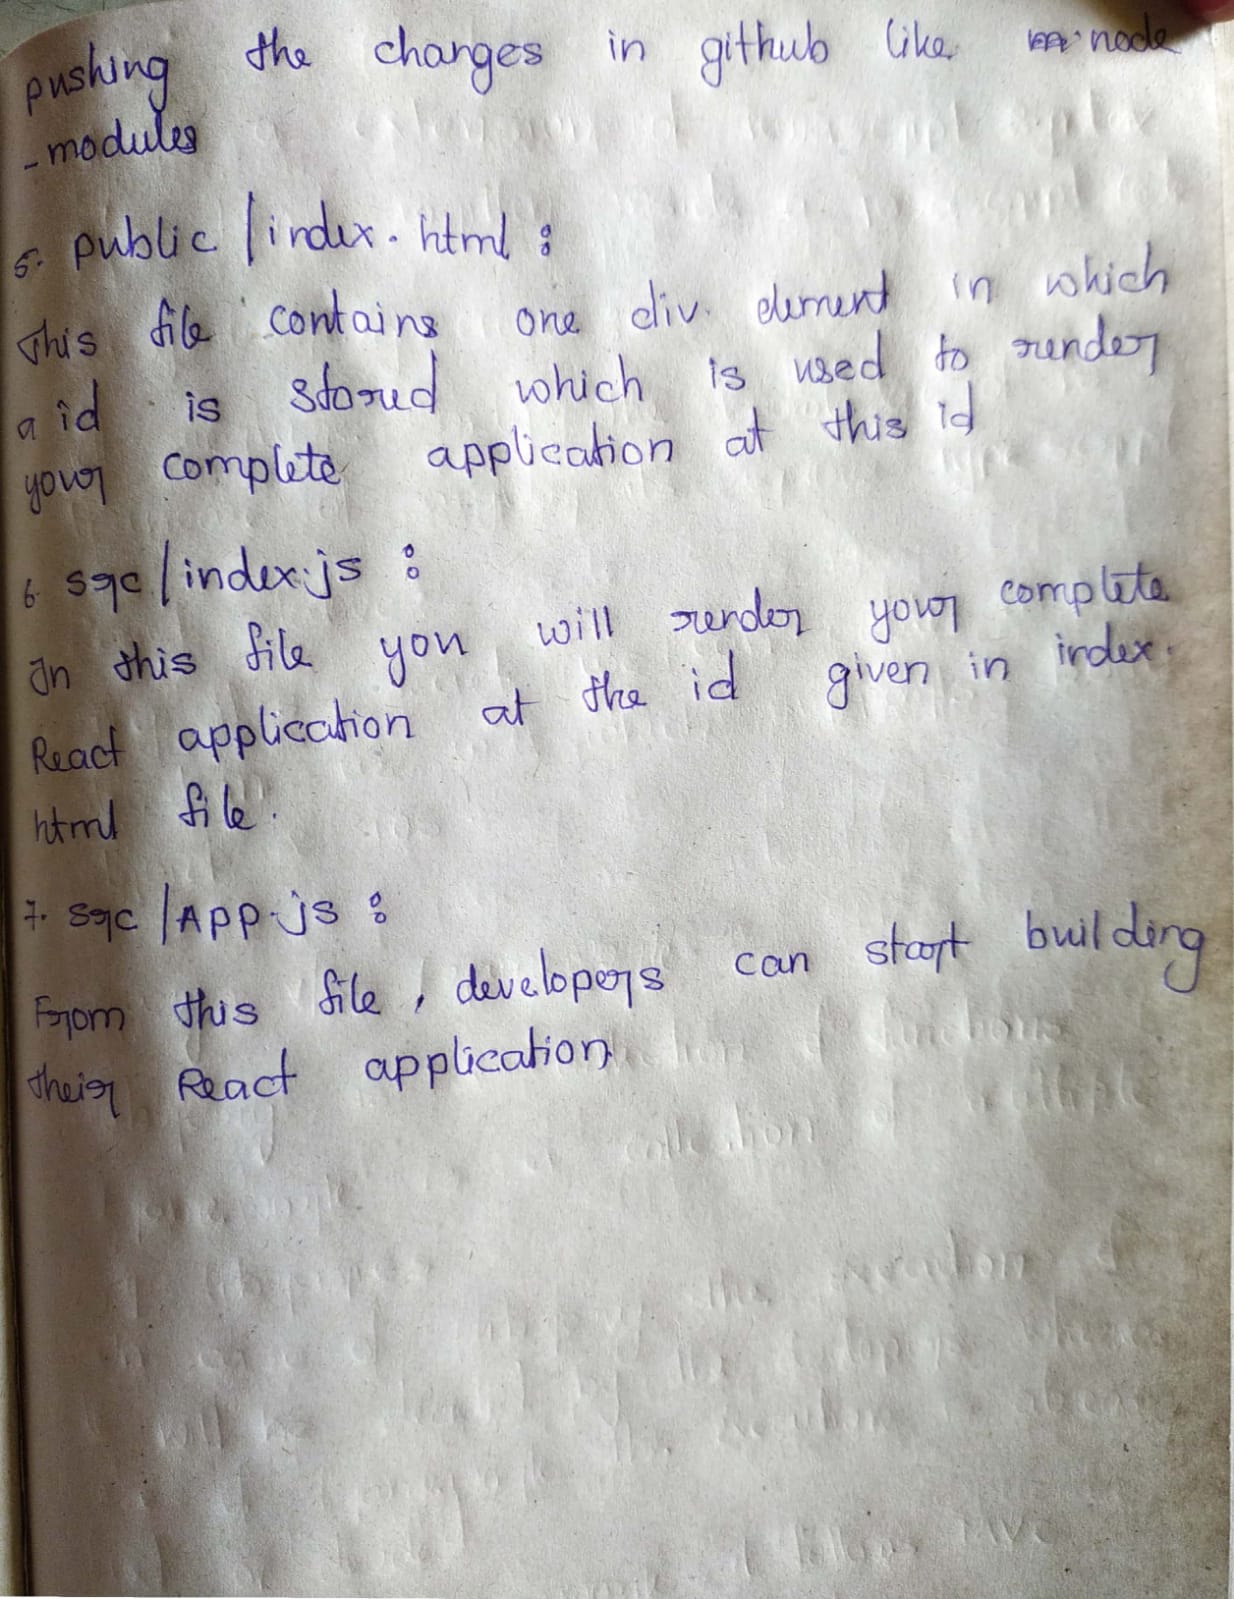 pushing the changes in github like node
_modules
5. public/index.html :
This file contains one div element in which
a id is stored which is used to render
your complete application at this id
6. src/index.js :
In this file you will render your complete
React application at the id given in index.
html file.
7. src/App.js :
From this file, developers can start building
their React application